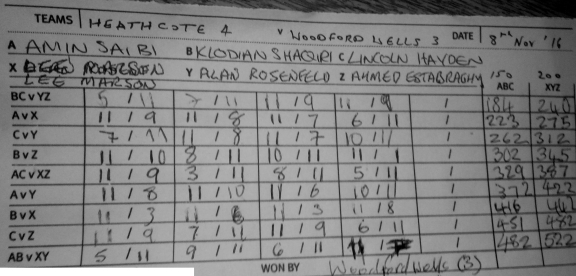 TEAMS HEATHCOTE 4 V WOODFORD WELLS 3 DATE 8 Nov '16
A AMIN SAIBI B KLODIAN SHAQIRI C LINCOLN HAYDEN
X Y ALAN ROSENFELD Z AHMED ESTABRAGHY 150 200
LEE MARSON ABC XYZ
BCvYZ 5 / 11 7 / 11 11 / 9 11 / 9 / 184 240
AvX 11 / 9 11 / 8 11 / 7 6 / 11 / 223 275
CvY 7 / 11 11 / 8 11 / 7 10 / 11 / 262 312
BvZ 11 / 10 8 / 11 10 / 11 11 / / 302 345
ACvXZ 11 / 9 3 / 11 8 / 11 5 / 11 / 329 387
AvY 11 / 8 11 / 10 11 / 6 10 / 11 / 372 422
BvX 11 / 3 11 / 6 11 / 3 11 / 8 / 416
CvZ 11 / 9 7 / 11 11 / 9 6 / 11 / 451 482
ABvXY 5 / 11 9 / 11 6 / 11 / 482 522
WON BY Woodford Wells (3)